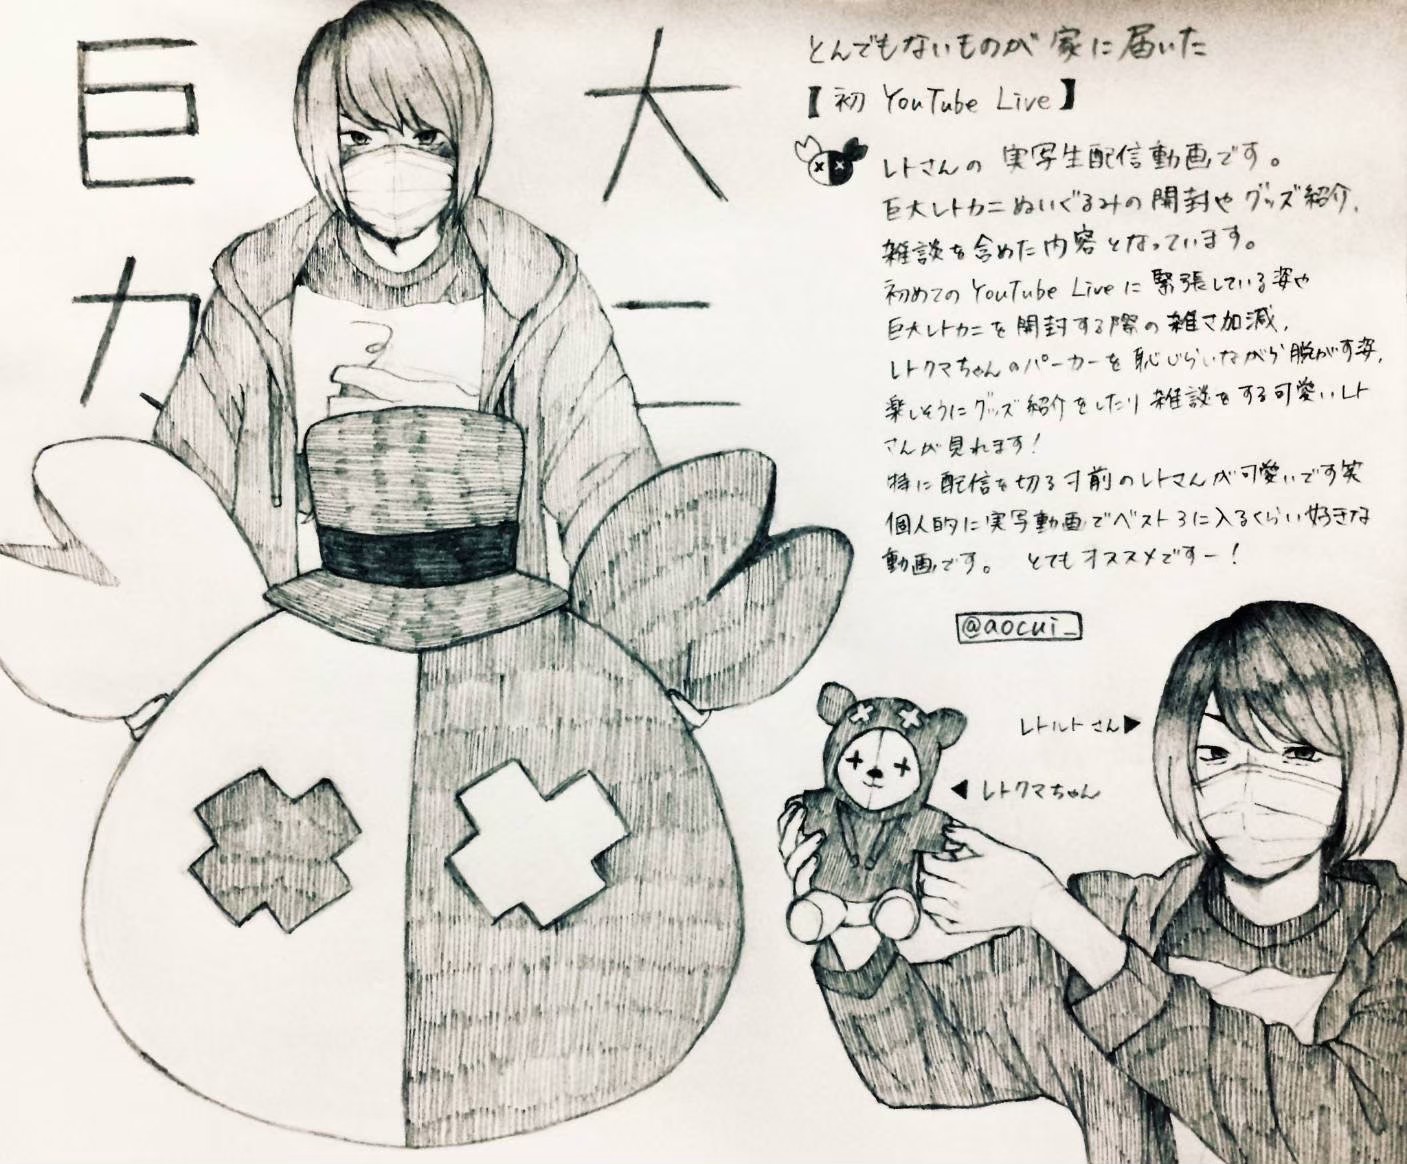 巨大
カニ
とんでもないものが家に届いた
【初 YouTube Live】
レトさんの 実写生配信動画です。
巨大レトカニぬいぐるみの開封やグッズ紹介、
雑談を含めた内容となっています。
初めてのYouTube Liveに緊張している姿や
巨大レトカニを開封する際の雑さ加減、
レトクマちゃんのパーカーを恥じらいながら脱がす姿、
楽しそうにグッズ紹介をしたり雑談をする可愛いレト
さんが見れます！
特に配信を切る寸前のレトさんが可愛いです笑
個人的に実写動画でベスト3に入るくらい好きな
動画です。 とてもオススメですー！
@aocui_
レトルトさん▶
◀レトクマちゃん